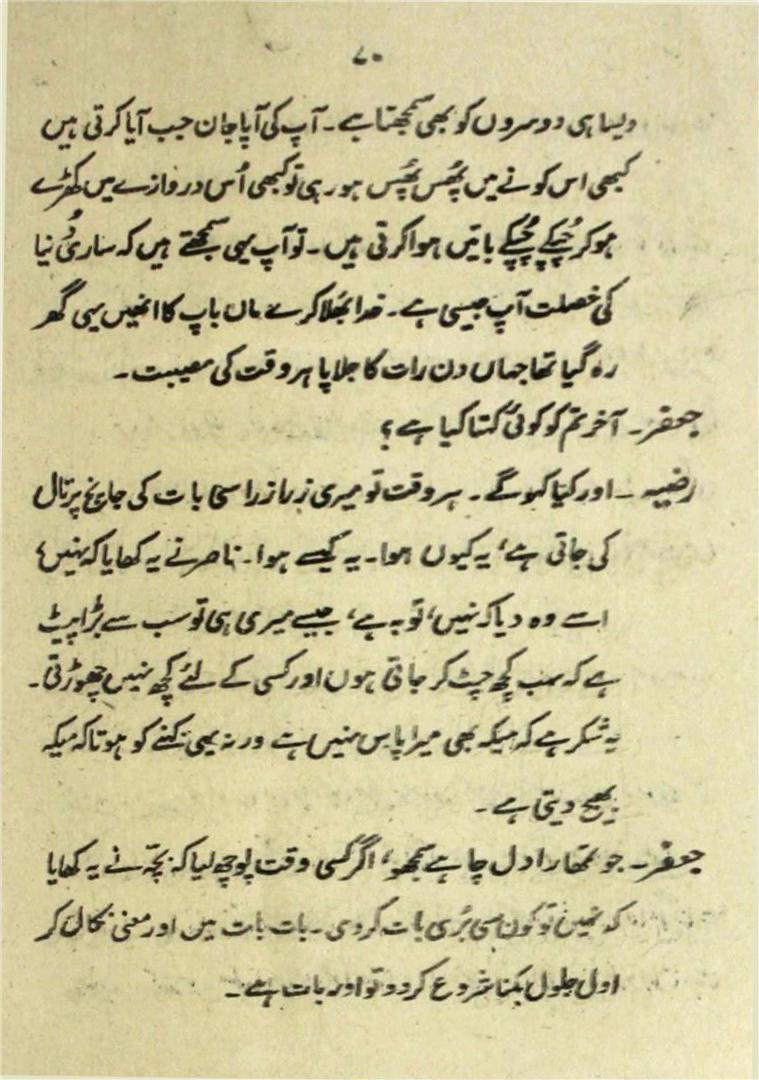 ۷۰
ویسا ہی دوسروں کو بھی سمجھتا ہے۔ آپ کی آپا جان جب آیا کرتی ہیں
کبھی اس کونے میں پھُس پھُس ہو رہی تو کبھی اُس دروازے میں کھڑے
ہو کر چُپکے چُپکے باتیں ہوا کرتی ہیں۔ تو آپ یہی سمجھتے ہیں کہ ساری دُنیا
کی خصلت آپ جیسی ہے۔ خدا بھلا کرے ماں باپ کا انھیں یہی گھر
رہ گیا تھا جہاں دن رات کا جلاپا ہر وقت کی مصیبت۔
جعفر۔ آخر تم کو کوئی کہتا کیا ہے؟
رضیہ۔ اور کیا کہو گے۔ ہر وقت تو میری زرا زرا سی بات کی جانچ پرتال
کی جاتی ہے، یہ کیوں ہوا۔ یہ کیسے ہوا۔ ناصر نے یہ کھایا کہ نہیں،
اسے وہ دیا کہ نہیں، توبہ ہے، جیسے میری ہی تو سب سے بڑا پیٹ
ہے کہ سب کچھ چٹ کر جاتی ہوں اور کسی کے لئے کچھ نہیں چھوڑتی۔
یہ شکر ہے کہ میکہ بھی میرا پاس نہیں ہے ورنہ یہی کہنے کو ہوتا کہ میکہ
بھیج دیتی ہے۔
جعفر۔ جو تمھارا دل چاہے سمجھو، اگر کسی وقت پوچھ لیا کہ بچّہ نے یہ کھایا
کہ نہیں تو کون سی بُری بات کر دی۔ بات بات میں اور معنی نکال کر
اول جلول بکنا شروع کر دو تو اور بات ہے۔